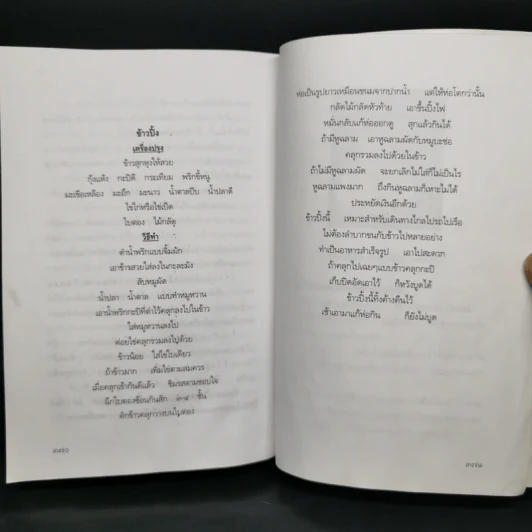 ข้าวปิ้ง
เครื่องปรุง
ข้าวสุกหุงให้สวย
กุ้งแห้ง กะปิดี กระเทียม พริกขี้หนู
มะเขือเหลือง มะอึก มะนาว น้ำตาลปีบ น้ำปลาดี
ไข่ไก่หรือไข่เป็ด
ใบตอง ไม้กลัด
วิธีทำ
ตำน้ำพริกแบบจิ้มผัก
เอาข้าวสวยใส่ลงในกะละมัง
สับหมูผัด
น้ำปลา น้ำตาล แบบทำหมูหวาน
เอาน้ำพริกกะปิที่ตำไว้คลุกลงไปในข้าว
ใส่หมูหวานลงไป
ต่อยไข่คลุกรวมลงไปด้วย
ข้าวน้อย ใส่ไข่ใบเดียว
ถ้าข้าวมาก เพิ่มไข่ตามสมควร
เมื่อคลุกเข้ากันดีแล้ว ชิมรสตามชอบใจ
ฉีกใบตองซ้อนกันสัก ๓-๔ ชั้น
ตักข้าวคลุกวางบนใบตอง
ห่อเป็นรูปยาวเหมือนขนมจากปากน้ำ แต่ให้ห่อโตกว่านั้น
กลัดไม้กลัดหัวท้าย เอาขึ้นปิ้งไฟ
หมั่นกลับแก้ห่อออกดู สุกแล้วกินได้
ถ้ามีหูฉลาม เอาหูฉลามผัดกับหมูบะช่อ
คลุกรวมลงไปด้วยในข้าว
ถ้าไม่มีหูฉลามผัด จะยกเลิกไม่ใส่ก็ไม่เป็นไร
หูฉลามแพงมาก ถึงกินหูฉลามก็เหาะไม่ได้
ประหยัดเงินอีกด้วย
ข้าวปิ้งนี้ เหมาะสำหรับเดินทางไกลไปรถไปเรือ
ไม่ต้องลำบากขนกับข้าวไปหลายอย่าง
ทำเป็นอาหารสำเร็จรูป เอาไปสะดวก
ถ้าคลุกไปเฉยๆแบบข้าวคลุกกะปิ
เก็บปิดอัดเอาไว้ ก็หวังบูดได้
ข้าวปิ้งนี้ทิ้งค้างคืนไว้
เช้าเอามาแก้ห่อกิน ก็ยังไม่บูด